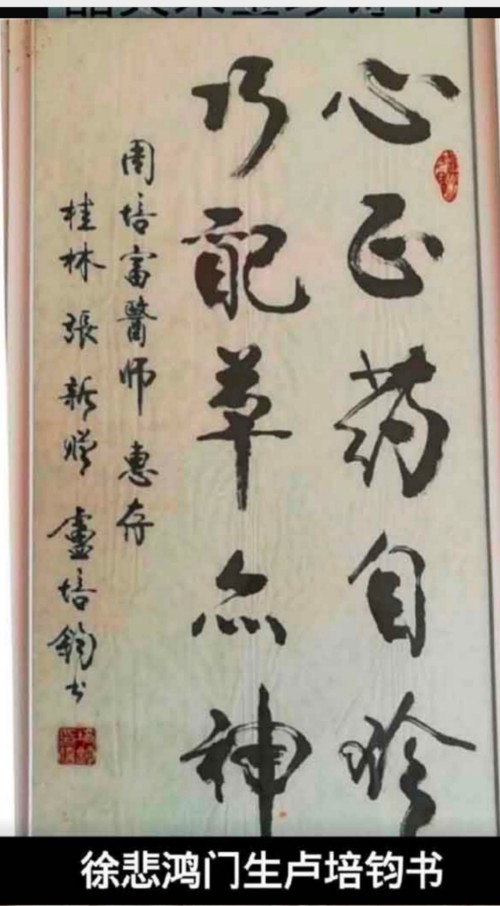 心正药自珍
巧配草亦神
周培富醫師 惠存
桂林 張新贈 盧培鈞书
徐悲鸿门生卢培钧书